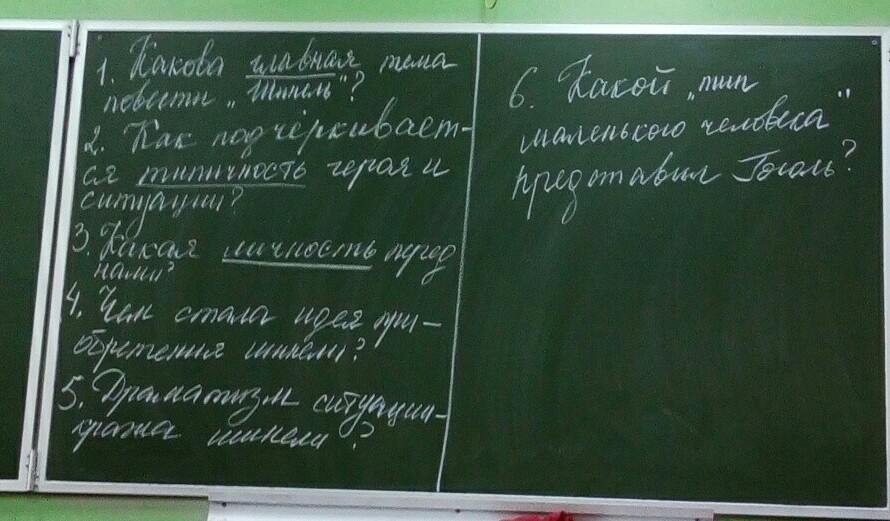 1. Какова главная тема
повести „Шинель"?
2. Как подчёркивает-
ся типичность героя и
ситуации?
3. Какая личность перед
нами?
4. Чем стала идея при-
обретения шинели?
5. Драматизм ситуации-
кража шинели?
6. Какой „тип
маленького человека"
представил Гоголь?